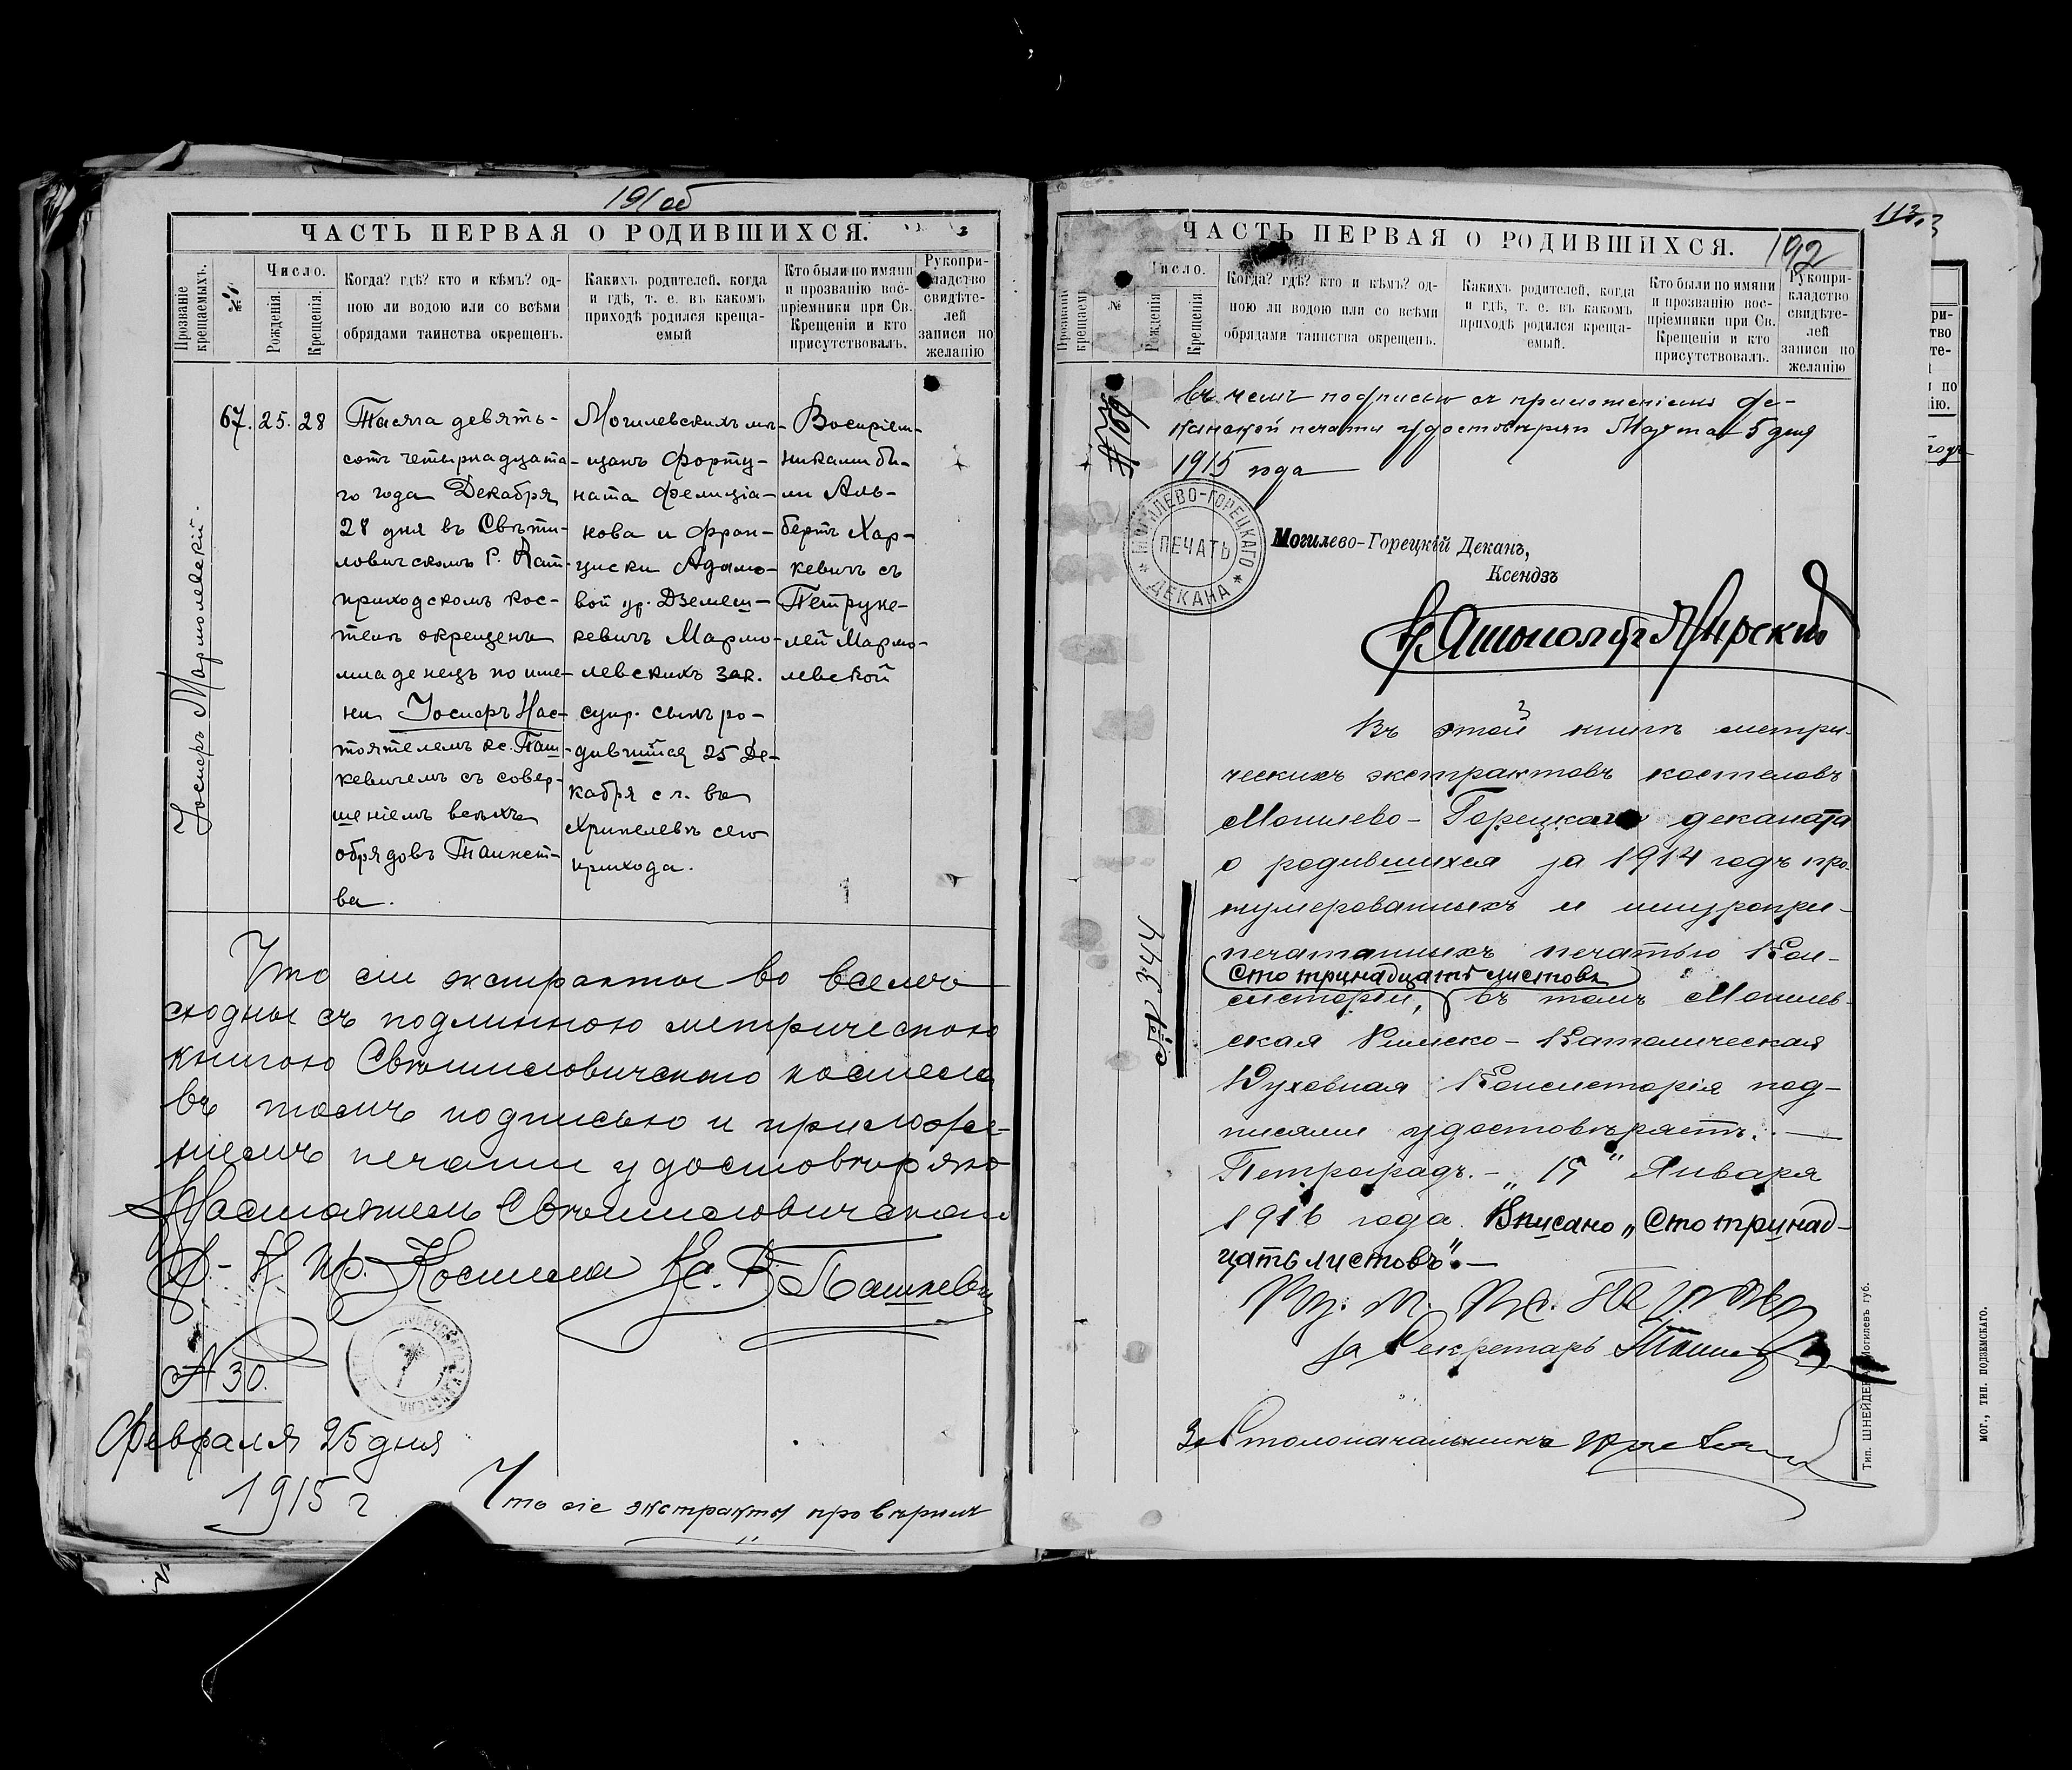 191 об
ЧАСТЬ ПЕРВАЯ О РОДИВШИХСЯ.
Прозваніе крещаемыхъ.
№
Число.
Рожденія.
Крещенія.
Когда? гдѣ? кто и кѣмъ? од-
ною ли водою или со всѣми
обрядами таинства окрещенъ.
Какихъ родителей, когда
и гдѣ, т. е. въ какомъ
приходѣ родился креща-
емый
Кто были по имяни
и прозванію вос-
пріемники при Св.
Крещеніи и кто
присутствовалъ.
Рукопри-
кладство
свидѣте-
лей
записи по
желанію
Іосифъ Мармолевскій.
67.
25.
28
Тысяча девять-
сотъ четырнадцата-
го года Декабря
28 дня въ Свѣти-
ловичскомъ Р. Кат.
приходскомъ кос-
телѣ окрещенъ
младенецъ по име-
ни Іосифъ Нас-
тоятелемъ кс. Паш-
кевичемъ съ совер-
шеніемъ всѣхъ
обрядовъ Таинст-
ва.
Могилевскихъ мѣ-
щанъ Форту-
ната Фелиціа-
нова и Фран-
циски Адамо-
вой ур. Дземеш-
кевичъ Мармо-
левскихъ зак.
супр. сынъ ро-
дившійся 25 Де-
кабря с г. въ
Хрипелевѣ сего
прихода.
Воспріем-
никами бы-
ли Аль-
бертъ Хар-
кевичъ съ
Петруне-
лей Мармо-
левской
Что сіи экстракты во всемъ
сходны съ подлинною метрическою
книгою Свѣтиловичскаго костела
въ томъ подписью и приложе-
ніемъ печати удостовѣряю
Настоятель Свѣтиловичскаго
Р.-К. пр. Костела Кс. В. Пашкевич
№ 30.
Февраля 25 дня
1915 г
Что сіе экстракты провѣрилъ
113.
192
ЧАСТЬ ПЕРВАЯ О РОДИВШИХСЯ.
Прозваніе крещаемыхъ
№
Число.
Рожденія
Крещенія.
Когда? гдѣ? кто и кѣмъ? од-
ною ли водою или со всѣми
обрядами таинства окрещенъ.
Какихъ родителей, когда
и гдѣ, т. е. въ какомъ
приходѣ родился креща-
емый.
Кто были по имяни
и прозванію вос-
пріемники при Св.
Крещеніи и кто
присутствовалъ.
Рукопри-
кладство
свидѣте-
лей
записи по
желанію
№ 169
въ чемъ подписью съ приложеніемъ де-
канской печати удостовѣряю Марта 5 дня
1915 года
МОГИЛЕВО-ГОРЕЦКАГО
ПЕЧАТЬ
* ДЕКАНА *
Могилево-Горецкій Деканъ,
Ксендзъ
Въ этой книгѣ метри-
ческихъ экстрактовъ костеловъ
Могилево-Горецкаго деканата
о родившихся за 1914 годъ про-
нумерованныхъ и шнуропри-
печатанныхъ печатью Кон-
Сто тринадцать листовъ
систоріи, въ томъ Могилев-
ская Римско-Католическая
Духовная Консисторія под-
писями удостовѣряетъ.
Петроградъ. - „15" Января
1916 года. Вписано „Сто тринад-
цать листовъ".
за Секретарь
За Столоначальника
№ 344
Тип. ШНЕЙДЕРА Могилевъ губ.
МОГ., ТИП. ПОДЗЕМСКАГО.